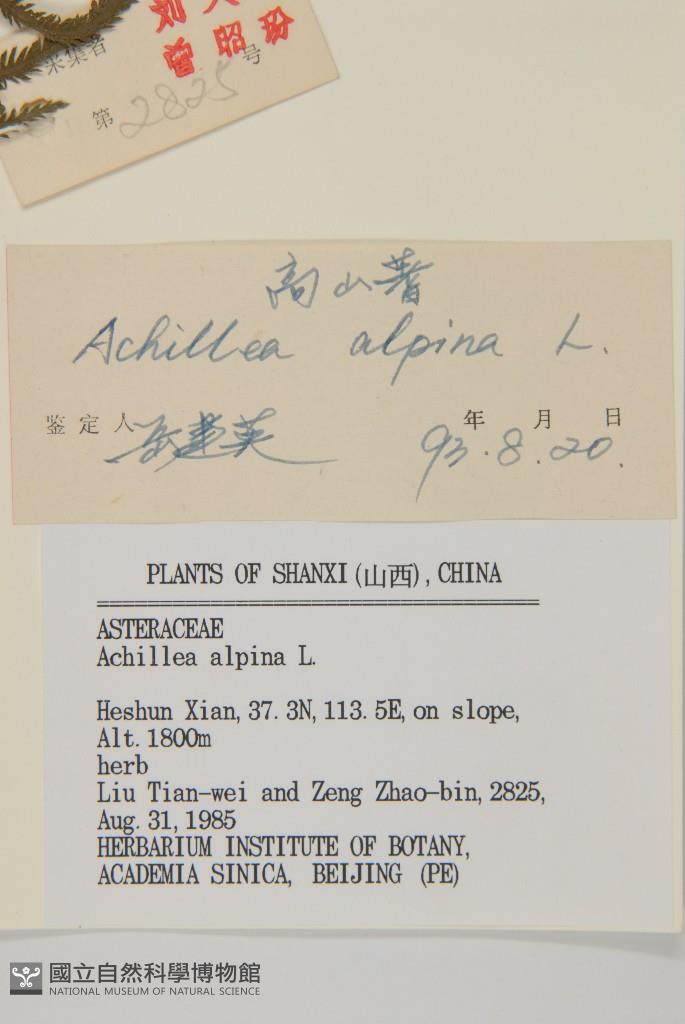 采集者
第 2825 号
高山蓍
Achillea alpina L.
鉴定人 岳建英 年 月 日
93.8.20.
PLANTS OF SHANXI(山西), CHINA
ASTERACEAE
Achillea alpina L.
Heshun Xian, 37.3N, 113.5E, on slope,
Alt. 1800m
herb
Liu Tian-wei and Zeng Zhao-bin, 2825,
Aug. 31, 1985
HERBARIUM INSTITUTE OF BOTANY,
ACADEMIA SINICA, BEIJING (PE)
國立自然科學博物館
NATIONAL MUSEUM OF NATURAL SCIENCE